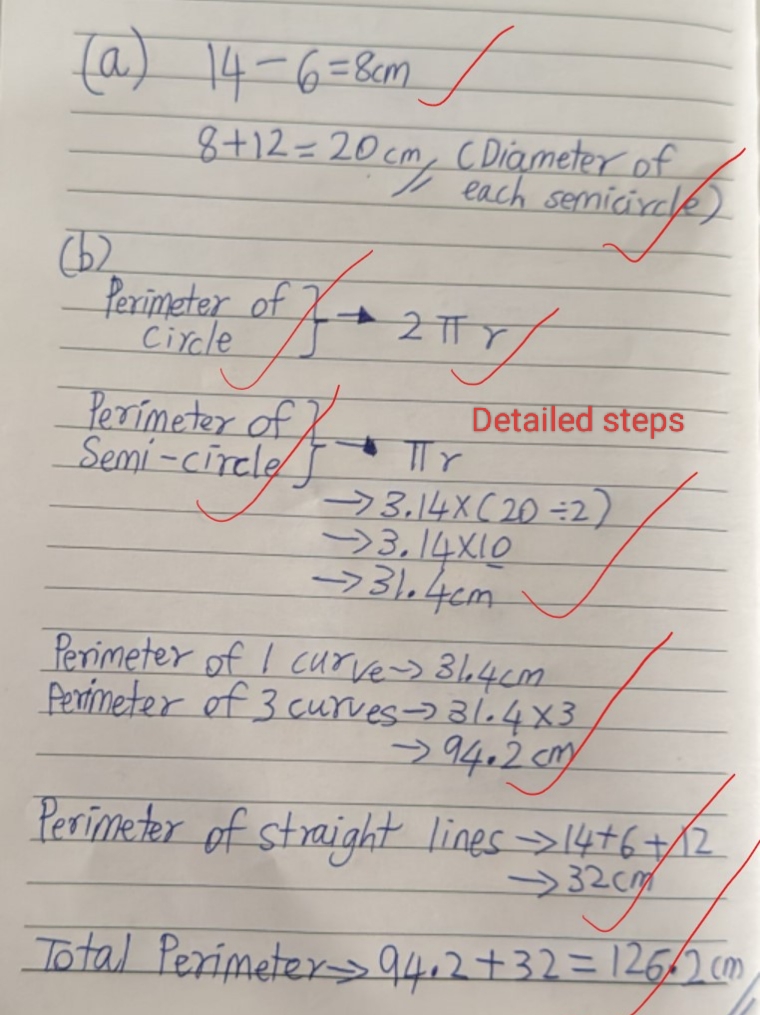 (a) 14 - 6 = 8cm
8 + 12 = 20 cm (Diameter of
each semicircle)
(b)
Perimeter of
circle } → 2 π r
Detailed steps
Perimeter of
Semi-circle } → π r
→ 3.14 × (20 ÷ 2)
→ 3.14 × 10
→ 31.4cm
Perimeter of 1 curve → 31.4cm
Perimeter of 3 curves → 31.4 × 3
→ 94.2 cm
Perimeter of straight lines → 14 + 6 + 12
→ 32cm
Total Perimeter → 94.2 + 32 = 126.2 cm